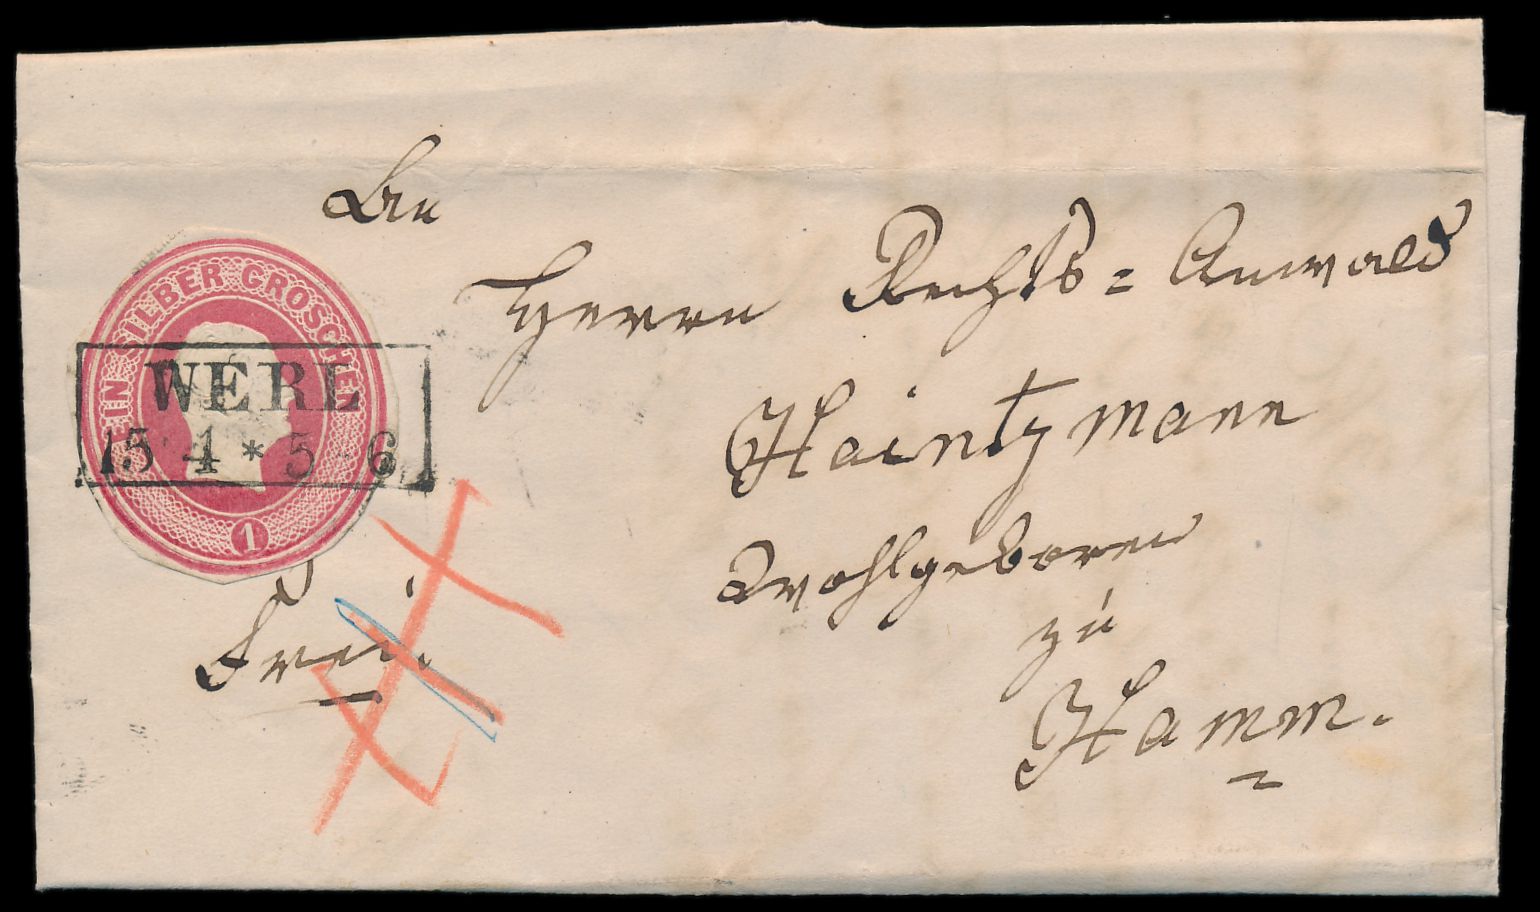 An
Herrn Rechts = Anwald
Haintzmann
Wohlgeboren
zu
Hamm.
EIN SILBER GROSCHEN
WERL
15 4 * 5-6
1
Frei.